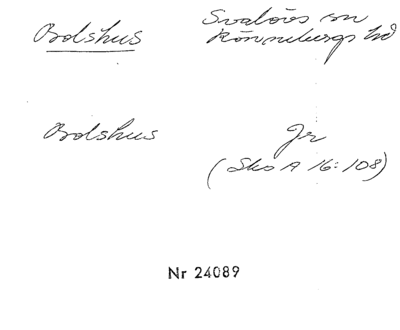 Bolshus Svalövs sn
Rönnebergs hd
Bolshus Jr
(Sko A 16:108)
Nr 24089